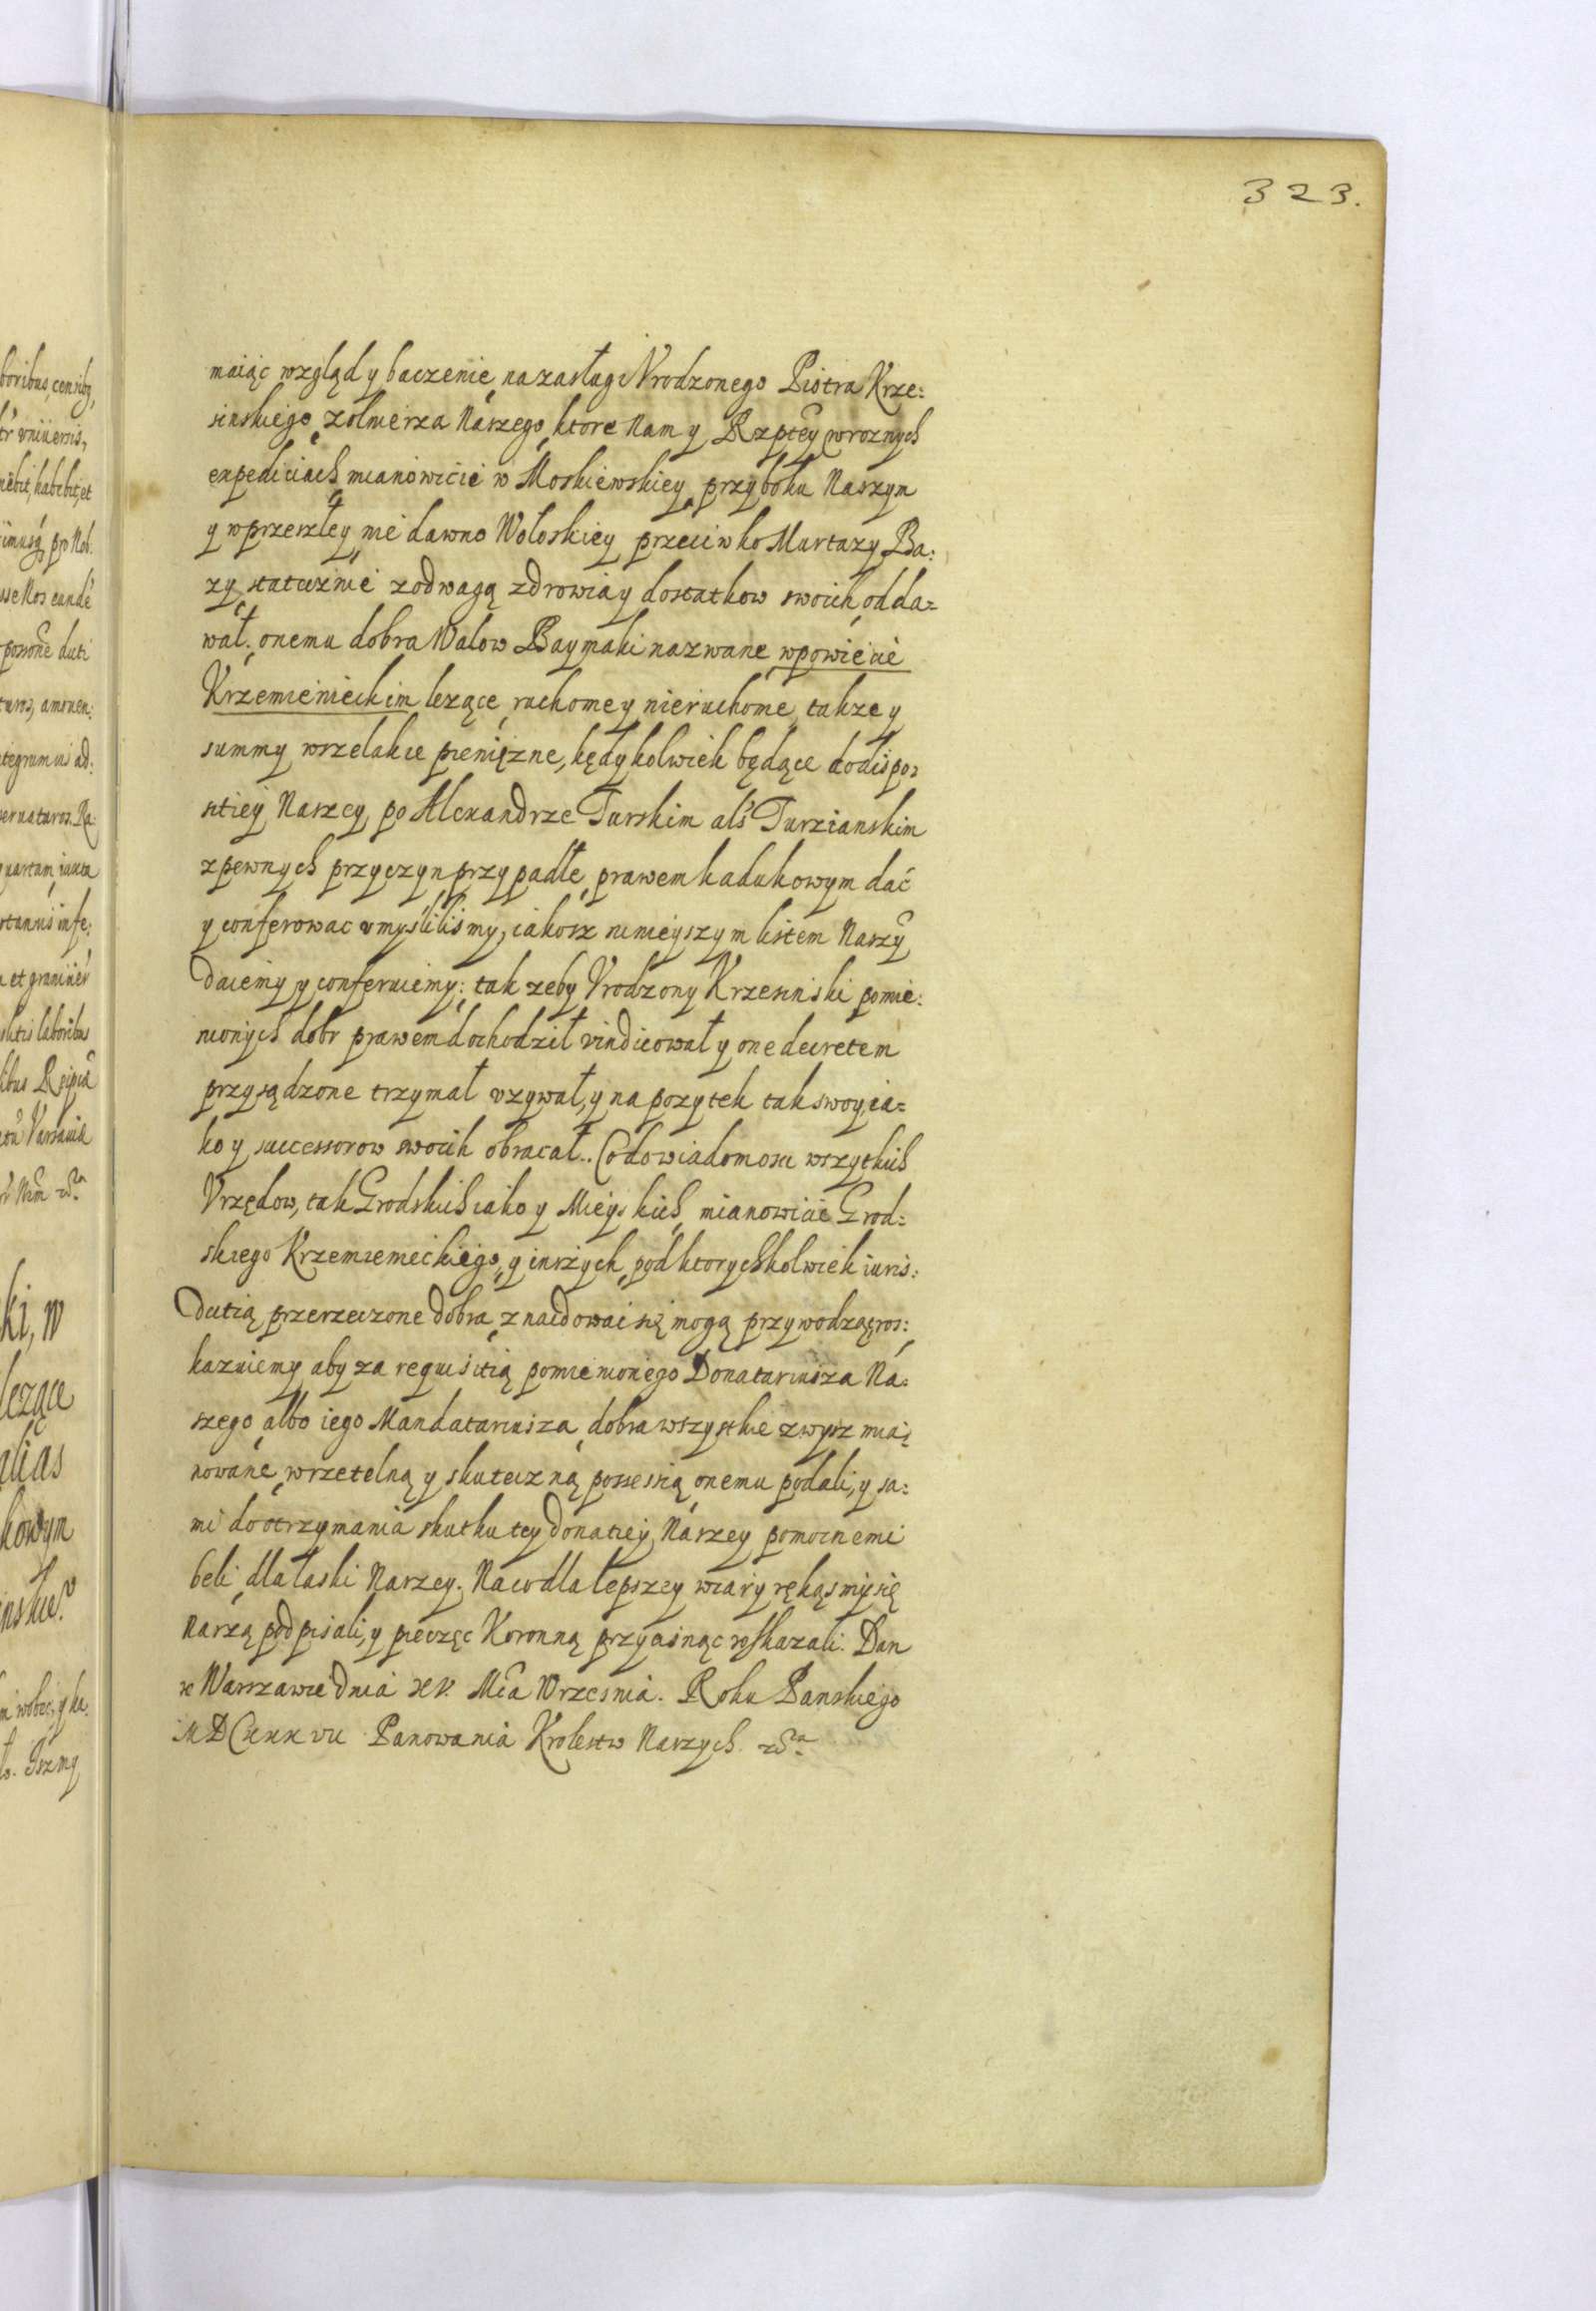 323.
maiąc wzgląd y baczenie na zasługi Vrodzonego Piotra Krze:
sinskiego zolnierza Naszego, ktore Nam y Rzptey w roznych
expediciach mianowicie w Moskiewskiey przy boku Naszym
y w przeszłey nie dawno Wołoskiey przeciwko Murtazy Ba:
zy statecznie z odwagą zdrowia y dostatkow swoich odda=
wał: onemu dobra Walow Baymaki nazwane w powiecie
Krzemienieckim lezące, ruchome y nieruchome, takze y
summy wszelakie pieniężne, kędykolwiek będące do dispo=
sitiey Naszey po Alexandrze Turskim als Turzianskim
z pewnych przyczyn przypadłe, prawem kadukowym dać
y conferowac vmyślilismy, iakosz ninieyszym listem Naszy
Daiemy y conferuiemy: tak zeby Vrodzony Krzesinski pomie:
nionych dobr prawem dochodził vindicował y one decretem
przysądzone trzymał vzywał, y na pozytek tak swoy ia=
ko y successorow swoich obracał.. Co do wiadomosci wszytkich
Vrzędow, tak Grodskich iako y Mieyskich, mianowicie Grod=
skiego Krzemienieckiego, y inszych, pod ktorychkolwiek iuris:
dictią przerzeczone dobra znaidowac się mogą przywodząc ros:
kazuiemy aby za requisitią pomienionego Donatariusza Na=
szego albo iego Mandatariusza, dobra wszystkie zwysz mia:
nowane w rzetelną y skuteczną possessią onemu podali, y sa:
mi do otrzymania skutku tey donatiey Naszey pomocnemi
beli dla łaski Naszey. Na co dla lepszey wiary ręką smy się
Naszą podpisali, y pieczęc Koronną przycisnąc roskazali. Dan
w Warszawie Dnia XV. Mca Wrzesnia. Roku Panskiego
MDCXXXVII Panowania Krolestw Naszych